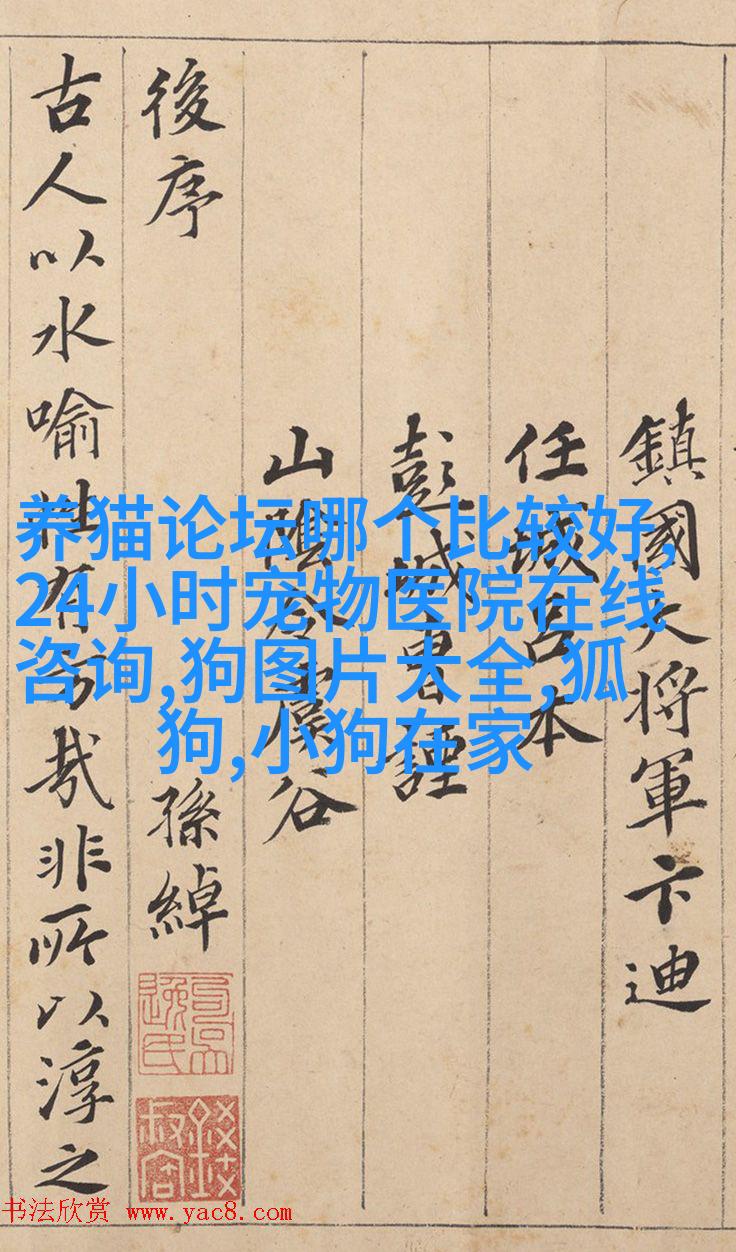 鎮國大將軍卞迪
任城呂本
彭城曹諲
山陰令虞谷
後序
孫綽
古人以水喻性有旨哉非所以淳之
养猫论坛哪个比较好,
24小时宠物医院在线
咨询,狗图片大全,狐
狗,小狗在家
书法欣赏 www.yac8.com